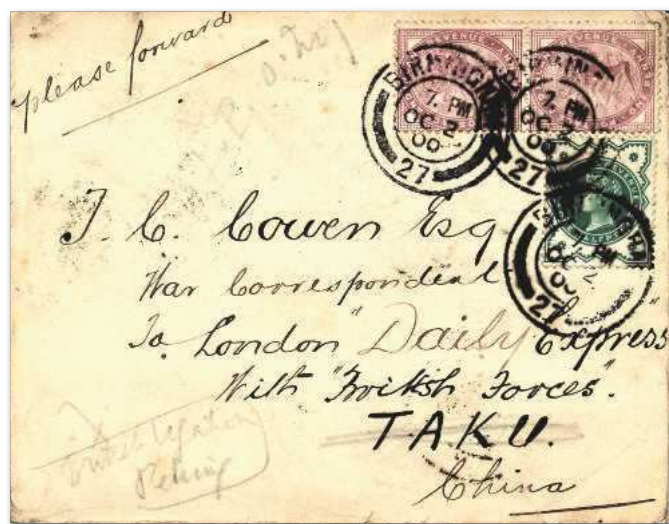 please forward
BIRMINGHAM
7. PM
OC 2
00
27
7. PM
OC 2
00
27
PM
OC 2
00
27
REVENUE
REVENUE
T. C. Cowen Esq
War Correspondent
To London "Daily Express"
With "British Forces".
TAKU.
China
British Legation
Peking